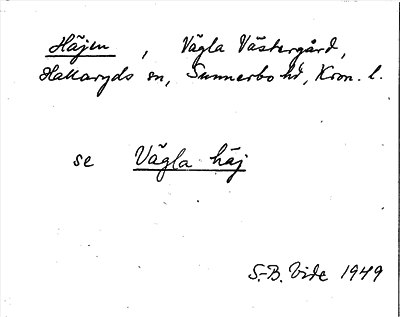 Häjen, Vägla Västergård,
Hallaryds sn, Sunnerbo hd, Kron. l.
se Vägla häj
S.-B. Vide 1949